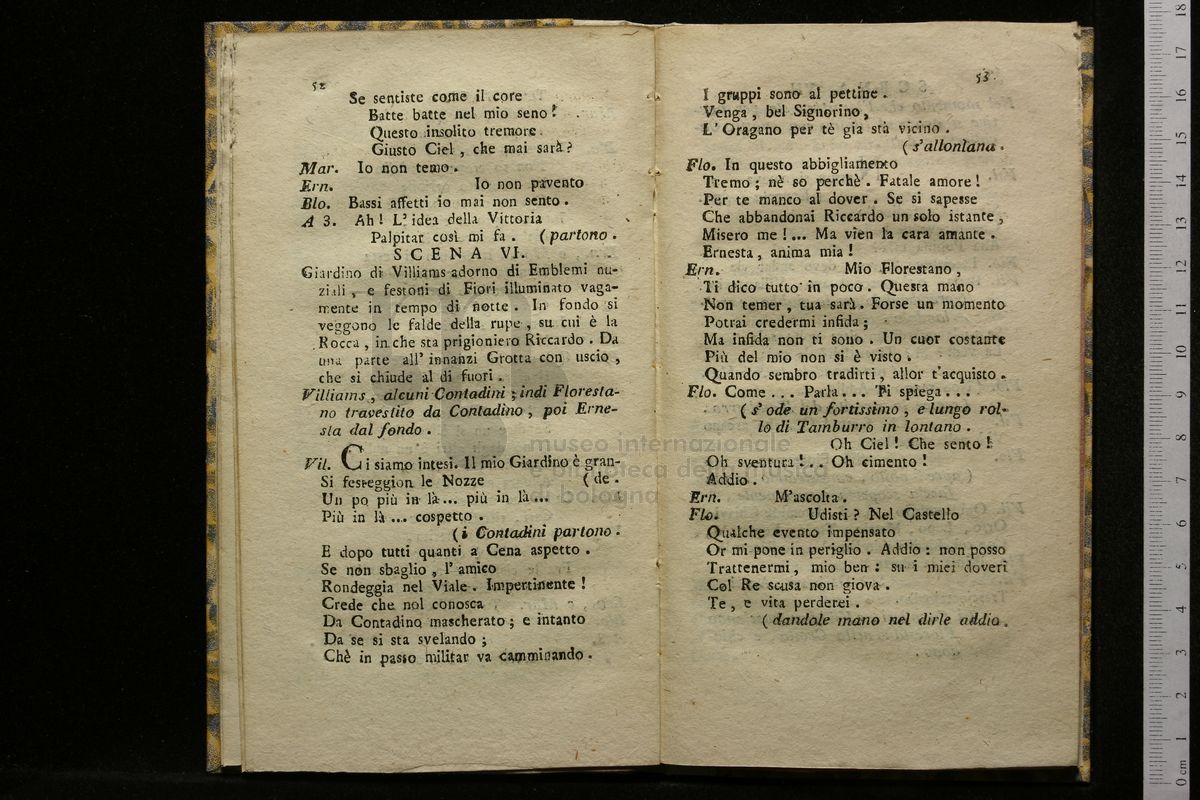 52
Se sentiste come il core
Batte batte nel mio seno!
Questo insolito tremore
Giusto Ciel, che mai sarà?
Mar. Io non temo.
Ern. Io non pavento
Blo. Bassi affetti io mai non sento.
A 3. Ah! L'idea della Vittoria
Palpitar così mi fa. (partono.
SCENA VI.
Giardino di Villiams adorno di Emblemi nu-
ziali, e festoni di Fiori illuminato vaga-
mente in tempo di notte. In fondo si
veggono le falde della rupe, su cui è la
Rocca, in che sta prigioniero Riccardo. Da
una parte all'innanzi Grotta con uscio,
che si chiude al di fuori.
Villiams, alcuni Contadini; indi Floresta-
no travestito da Contadino, poi Erne-
sta dal fondo.
Vil. Ci siamo intesi. Il mio Giardino è gran-
Si festeggion le Nozze (de.
Un po più in là... più in là...
Più in là... cospetto.
(i Contadini partono.
E dopo tutti quanti a Cena aspetto.
Se non sbaglio, l'amico
Rondeggia nel Viale. Impertinente!
Crede che nol conosca
Da Contadino mascherato; e intanto
Da se si sta svelando;
Chè in passo militar va camminando.
53
I gruppi sono al pettine.
Venga, bel Signorino,
L'Oragano per tè gia stà vicino.
(s'allontana.
Flo. In questo abbigliamento
Tremo; nè so perchè. Fatale amore!
Per te manco al dover. Se si sapesse
Che abbandonai Riccardo un solo istante,
Misero me!... Ma vien la cara amante.
Ernesta, anima mia!
Ern. Mio Florestano,
Ti dico tutto in poco. Questa mano
Non temer, tua sarà. Forse un momento
Potrai credermi infida;
Ma infida non ti sono. Un cuor costante
Più del mio non si è visto.
Quando sembro tradirti, allor t'acquisto.
Flo. Come... Parla... Ti spiega...
(s'ode un fortissimo, e lungo rol-
lo di Tamburro in lontano.
Oh Ciel! Che sento!
Oh sventura!.. Oh cimento!
Addio.
Ern. M'ascolta.
Flo. Udisti? Nel Castello
Qualche evento impensato
Or mi pone in periglio. Addio: non posso
Trattenermi, mio ben: su i miei doveri
Col Re scusa non giova.
Te, e vita perderei.
(dandole mano nel dirle addio.
museo internazionale
biblioteca della musica
bologna
0 cm 1 2 3 4 5 6 7 8 9 10 11 12 13 14 15 16 17 18